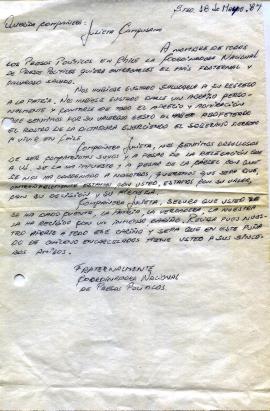 Stgo. 18 de Mayo, 87
Querida compañera:
Julieta Campusano
A nombre de todos
los Presos Políticos en Chile la Coordinadora Nacional
de Presos Políticos quiere entregarles el más fraternal y
caluroso saludo.
Nos hubiese gustado saludarla a su regreso
a la Patria. Nos hubiese gustado darle un abrazo apreta
 y contarle de todo el afecto y admiración
que sentimos por su valeroso gesto al haber abofeteado
el rostro de la dictadura ejerciendo el soberano derecho
a vivir en Chile
Compañera Julieta, nos sentimos orgullosos
de ser compatriotas suyos y a pesar de la relegación que
a Ud. se la ha impuesto y a pesar de la cárcel con que
se nos ha condenado a nosotros, queremos que sepa que,
 estamos con usted, estamos por su valor,
con su decisión y su
Compañera Julieta, seguro que usted
le ha dado fuerza. La Patria, la verdadera, la nuestra
la ha recibido con un inmenso cariño. Reciba pues nuestro
aporte a todo ese cariño y sepa que en este puña
do de chilenos encarcelados tiene usted a sus sinceros
amigos.
Fraternalmente
Coordinadora Nacional
de Presos Políticos.